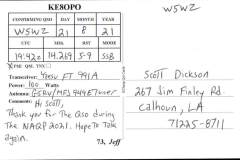 KE5OPO
W5WZ
CONFIRMING QSO DAY MONTH YEAR
W5WZ 21 8 21
UTC MHz RST MODE
19:420 14.269 5-9 SSB
PSE QSL TNX
Transceiver: Yaesu FT 991A
Power: 100 Watts
Antenna: G5RV/MFJ 949E Tuner
Comments: Hi Scott,
Thank you for The Qso during
The NAQP 2021. Hope To Talk
again.
73, Jeff
Scott Dickson
267 Jim Finley Rd.
Calhoun, LA
71225-8711